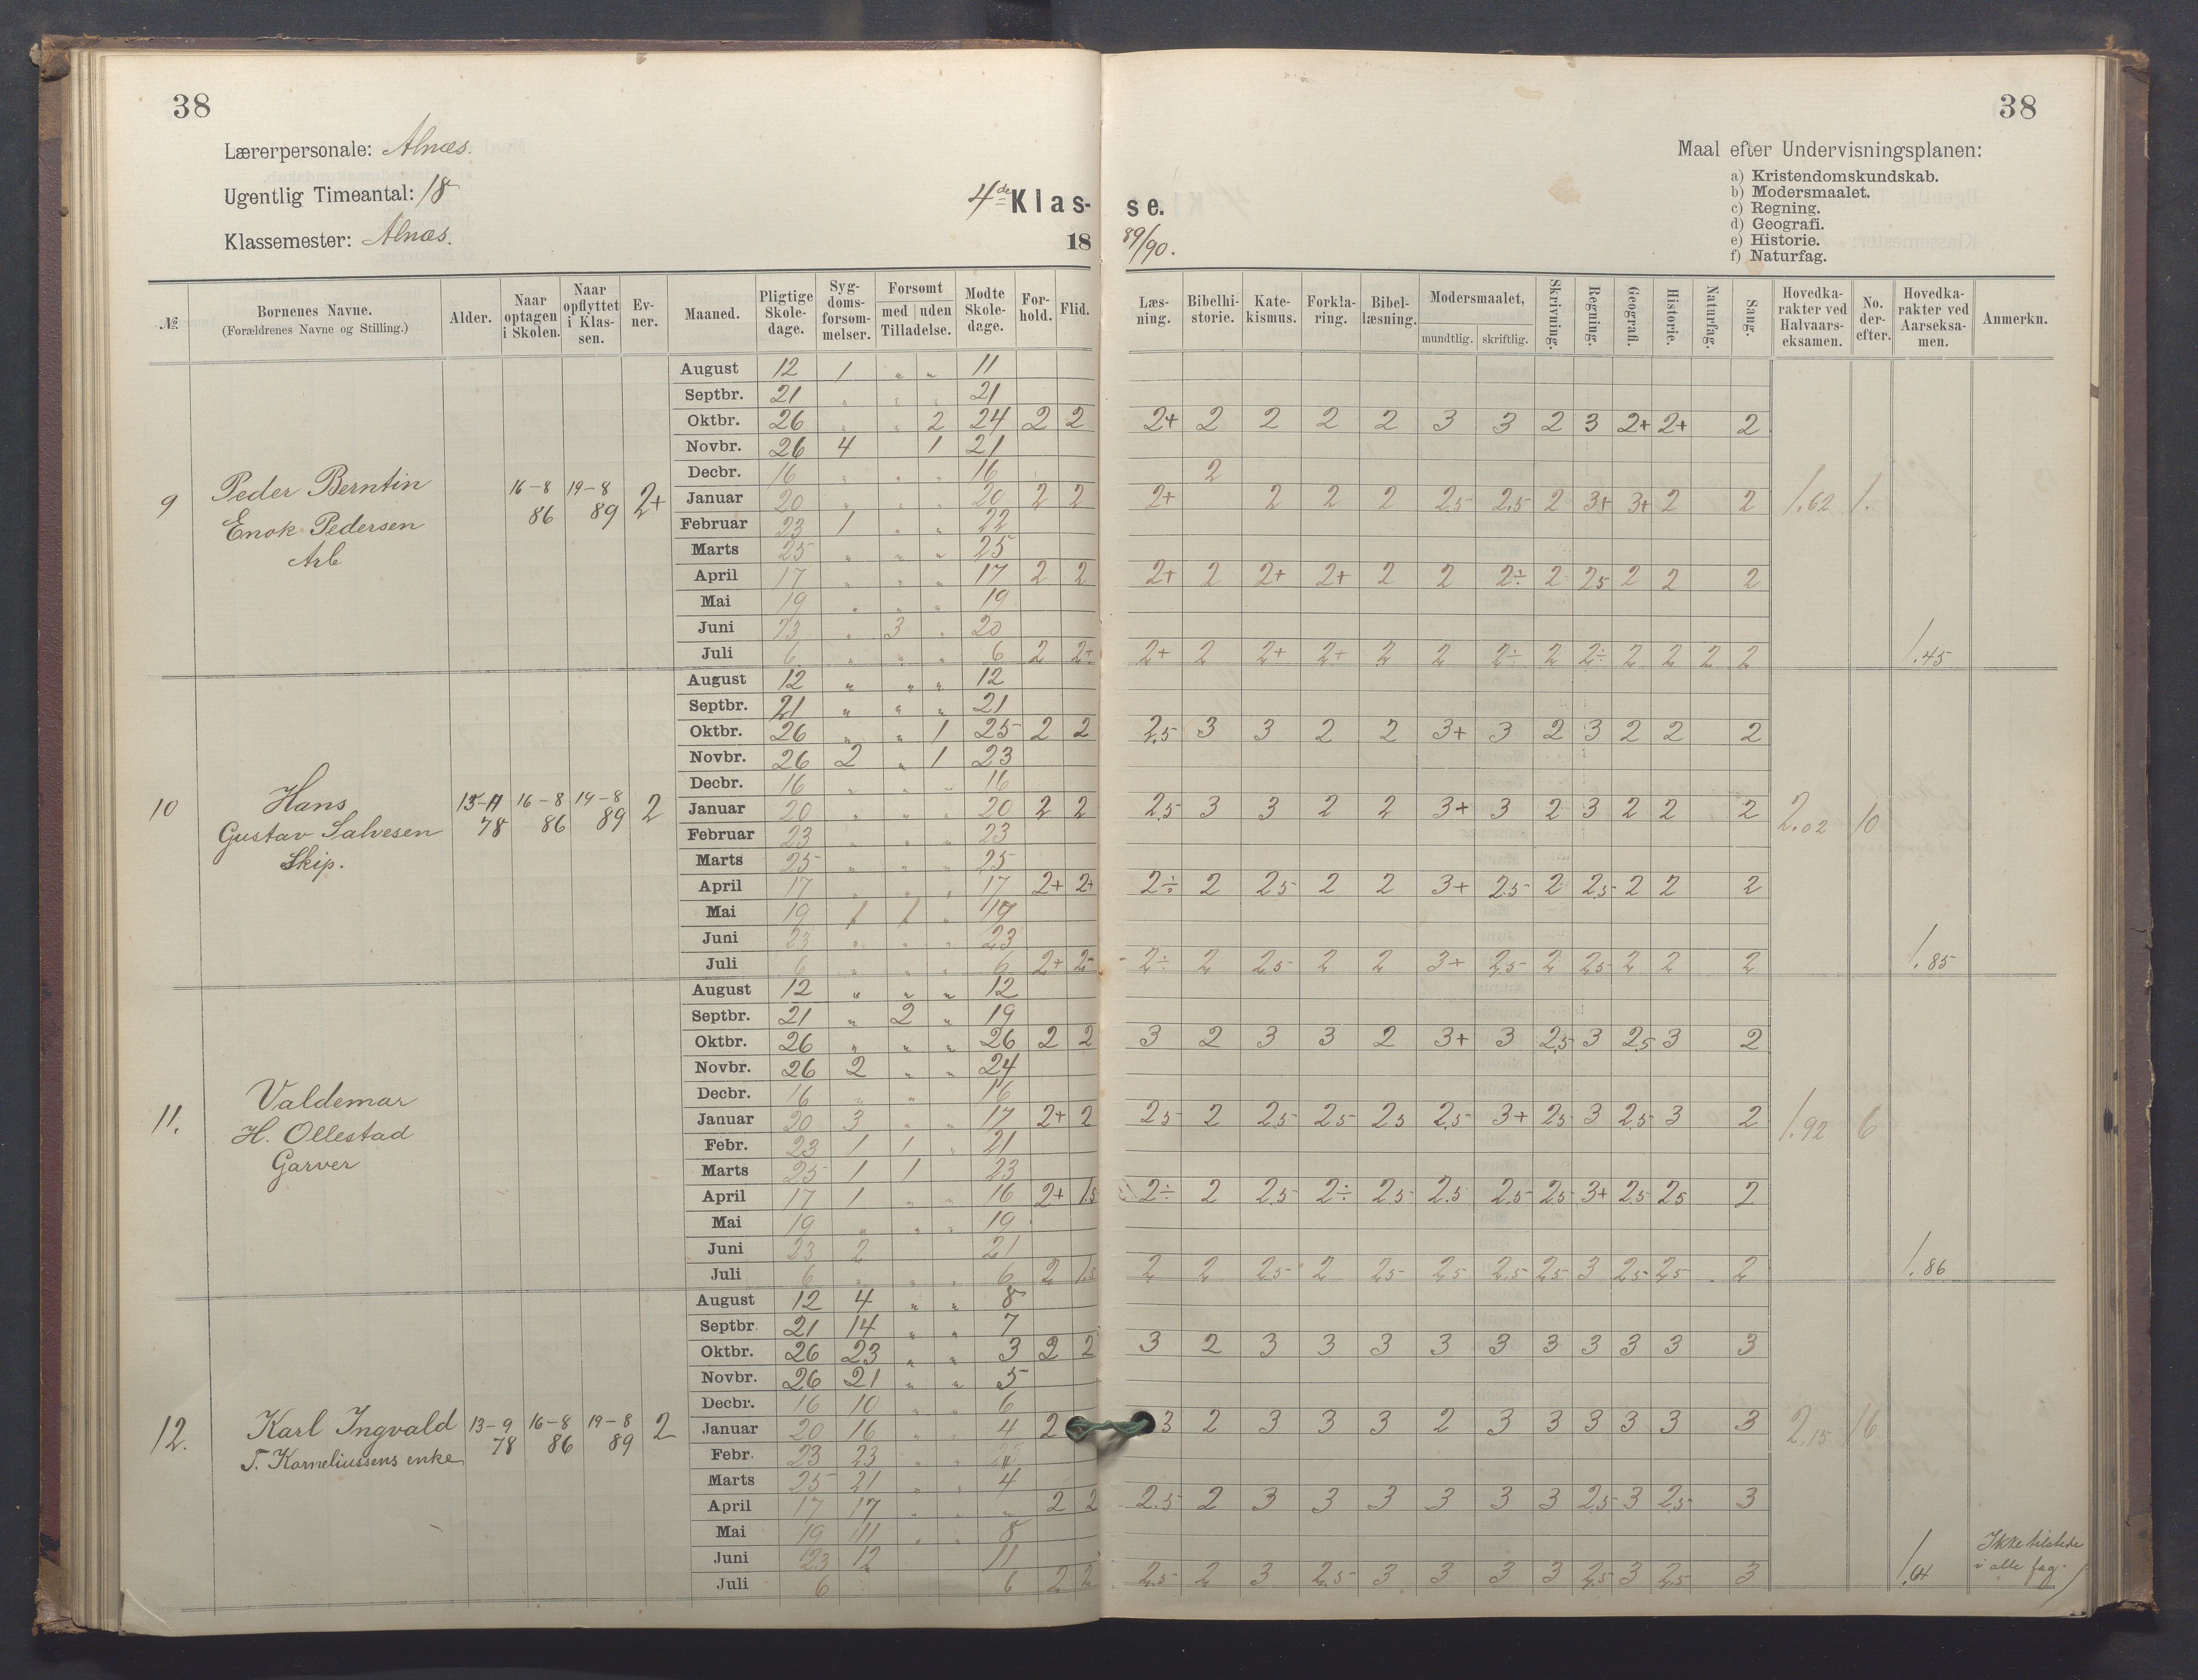 38
38
Lærerpersonale: Alnæs.
Ugentlig Timeantal: 18
Klassemester: Alnæs.
4de Klas-
se.
18
89/90.
Maal efter Undervisningsplanen:
a) Kristendomskundskab.
b) Modersmaalet.
c) Regning.
d) Geografi.
e) Historie.
f) Naturfag.
№ Bornenes Navne. (Forældrenes Navne og Stilling.) Alder. Naar optagen i Skolen. Naar opflyttet i Klassen. Evner. Maaned. Pligtige Skoledage. Sygdomsforsommelser. Forsomt med uden Tilladelse. Modte Skoledage. Forhold. Flid.
Læsning. Bibelhistorie. Katekismus. Forklaring. Bibellæsning. Modersmaalet, mundtlig. skriftlig. Skrivning. Regning. Geografi. Historie. Naturfag. Sang. Hovedkarakter ved Halvaarseksamen. No. derefter. Hovedkarakter ved Aarseksamen. Anmerkn.
9 Peder Berntin
Enok Pedersen
Arb
16-8 86 19-8 89 2+
August 12 1 " " 11
Septbr. 21 " " " 21
Oktbr. 26 " " 2 24 2 2 2+ 2 2 2 2 3 3 2 3 2+ 2+ 2
Novbr. 26 4 1 21
Decbr. 16 " " " 16 2
Januar 20 " " " 20 2 2 2+ 2 2 2 2.5 2.5 2 3+ 3+ 2 2 1.62 1.
Februar 23 1 " " 22
Marts 25 " " " 25
April 17 " " " 17 2 2 2+ 2 2+ 2+ 2 2 2÷ 2 2.5 2 2 2
Mai 19 " " " 19
Juni 23 " 3 " 20
Juli 6 " " " 6 2 2+ 2+ 2 2+ 2+ 2 2 2÷ 2 2÷ 2 2 2 2 1.45
10 Hans
Gustav Salvesen
Skip.
15-11 78 16-8 86 19-8 89 2
August 12 " " " 12
Septbr. 21 " " " 21
Oktbr. 26 " " 1 25 2 2 2.5 3 3 2 2 3+ 3 2 3 2 2 2
Novbr. 26 2 " 1 23
Decbr. 16 " " " 16
Januar 20 " " " 20 2 2 2.5 3 3 2 2 3+ 3 2 3 2 2 2 2.02 10
Februar 23 " " " 23
Marts 25 " " " 25
April 17 " " " 17 2+ 2+ 2÷ 2 2.5 2 2 3+ 2.5 2 2.5 2 2 2
Mai 19 1 1 " 17
Juni 23 " " " 23
Juli 6 " " " 6 2+ 2÷ 2 2.5 2 2 3+ 2.5 2 2.5 2 2 2 1.85
11. Valdemar
H. Ollestad
Garver
August 12 " " " 12
Septbr. 21 " 2 " 19
Oktbr. 26 " " " 26 2 2 3 2 3 3 2 3+ 3 2.5 3 2.5 3 2
Novbr. 26 2 " " 24
Decbr. 16 " " 16
Januar 20 3 " " 17 2+ 2 2.5 2 2.5 2.5 2.5 2.5 3+ 2.5 3 2.5 3 2 1.92 6
Febr. 23 1 1 " 21
Marts 25 1 1 23
April 17 1 " " 16 2+ 1.5 2÷ 2 2.5 2÷ 2.5 2.5 2.5 2.5 3+ 2.5 2.5 2
Mai 19 " " " 19
Juni 23 2 21
Juli 6 " " " 6 2 1.5 2 2 2.5 2 2.5 2.5 2.5 2.5 3 2.5 2.5 2 1.86
12. Karl Ingvald
T. Korneliussens enke
13-9 78 16-8 86 19-8 89 2
August 12 4 " " 8
Septbr. 21 14 " " 7
Oktbr. 26 23 " " 3 2 2 3 2 3 3 3 3 3 3 3 3 3 3
Novbr. 26 21 " " 5
Decbr. 16 10 " " 6
Januar 20 16 " " 4 2 3 2 3 3 3 2 3 3 3 3 3 3 2.15 16
Febr. 23 23 " "
Marts 25 21 " " 4
April 17 17 " " " 2 2 2.5 2 3 3 3 3 3 3 2.5 3 2.5 3
Mai 19 11 " " 8
Juni 23 12 11
Juli 6 6 2 2 2.5 2 3 2.5 3 3 3 3 2.5 3 2.5 3
Ikke tilstede
i alle fag.